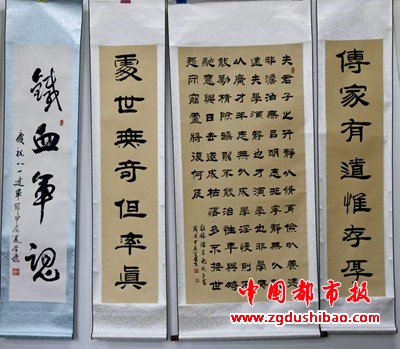 傳家有道惟存厚
夫君子之行靜以脩身儉以養德
非澹泊無以明志非寧靜無以致
遠夫學須靜也才須學也非學無
以廣才非志無以成學慆慢則不
能勵精險躁則不能治性年與時
馳意與日去遂成枯落多不接世
悲守窮廬將復何及
處世無奇但率真
鐵血軍魂
慶祝八一建軍節甲辰夏
中國都市报
www.zgdushibao.com